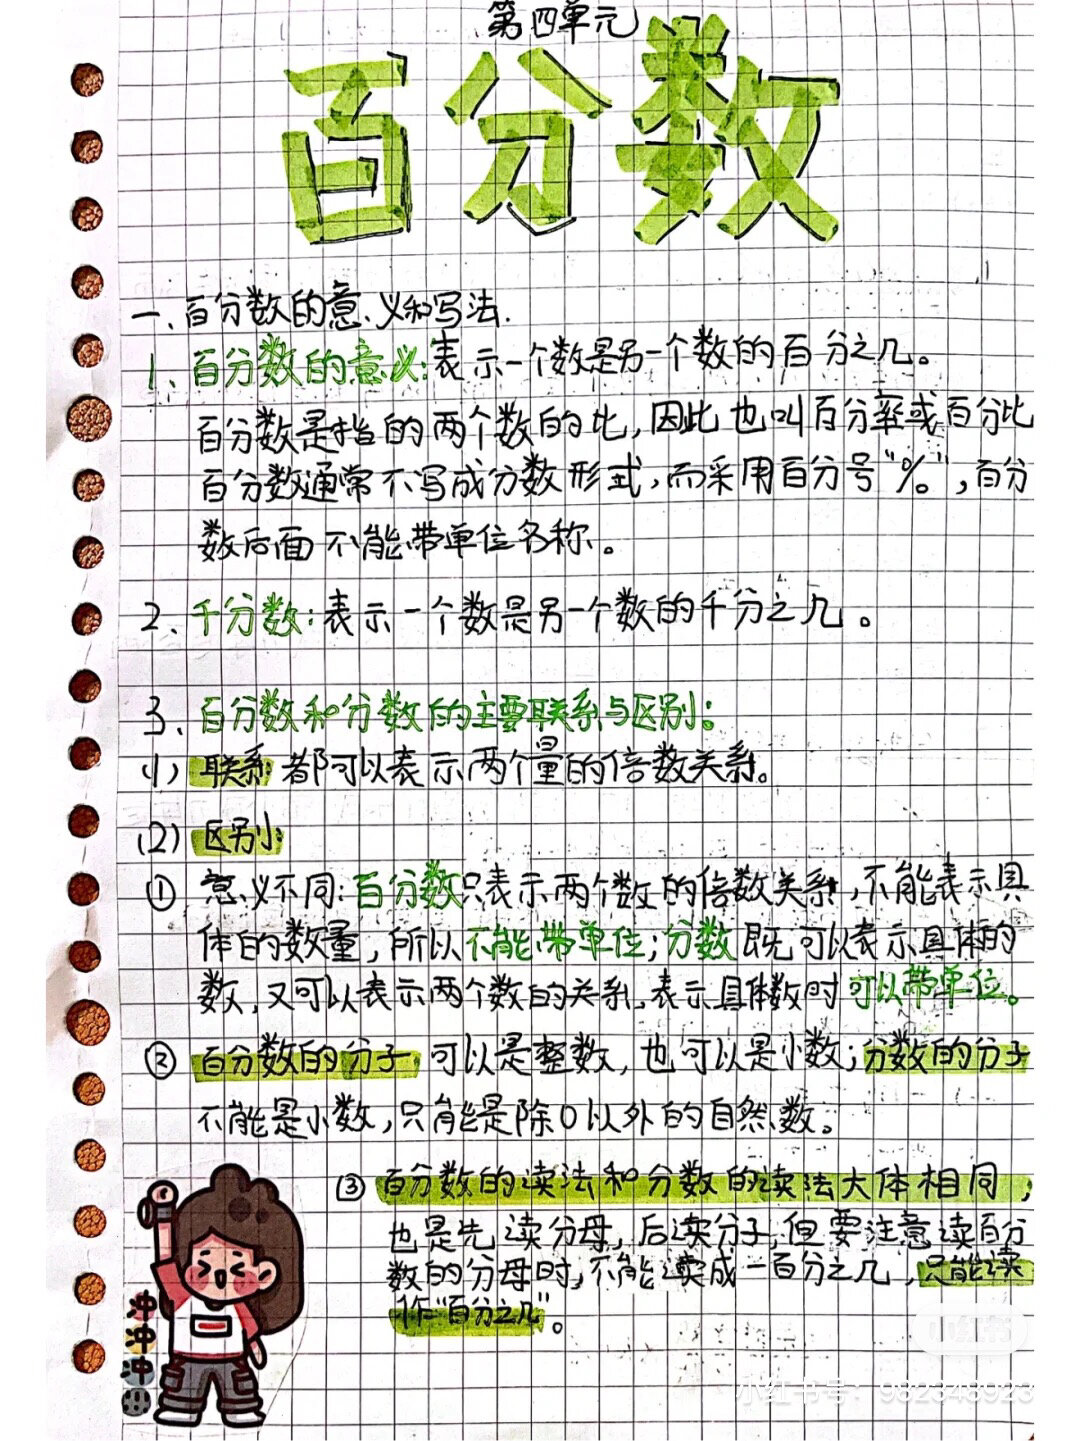 第四单元
百分数
一、百分数的意义和写法.
1、百分数的意义:表示一个数是另一个数的百分之几。
百分数是指的两个数的比,因此也叫百分率或百分比
百分数通常不写成分数形式,而采用百分号"%",百分
数后面不能带单位名称。
2、千分数:表示一个数是另一个数的千分之几。
3、百分数和分数的主要联系与区别:
(1) 联系:都可以表示两个量的倍数关系。
(2) 区别:
① 意义不同:百分数只表示两个数的倍数关系,不能表示具
体的数量,所以不能带单位;分数既可以表示具体的
数,又可以表示两个数的关系,表示具体数时可以带单位。
② 百分数的分子可以是整数,也可以是小数;分数的分子
不能是小数,只能是除0以外的自然数。
③ 百分数的读法和分数的读法大体相同,
也是先读分母,后读分子,但要注意读百分
数的分母时,不能读成一百分之几,只能读
作"百分之几"。
冲
冲
冲
小红书
小红书号: